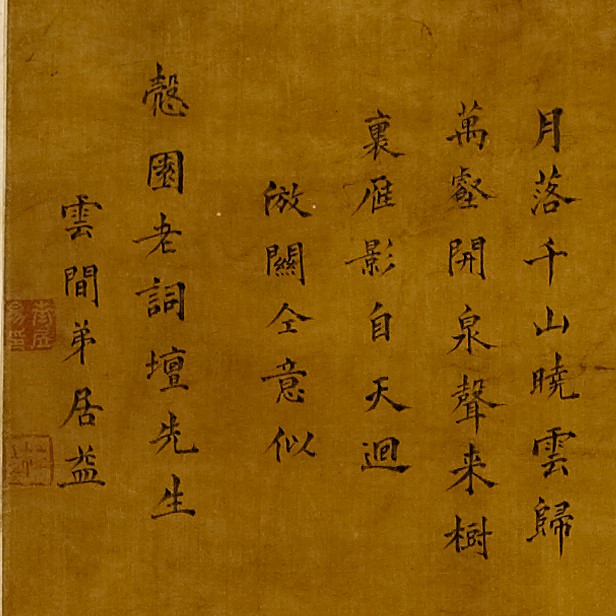 月落千山曉雲歸
萬壑開泉聲来樹
裏雁影自天迴
倣關仝意似
慤園老詞壇先生
雲間弟居益